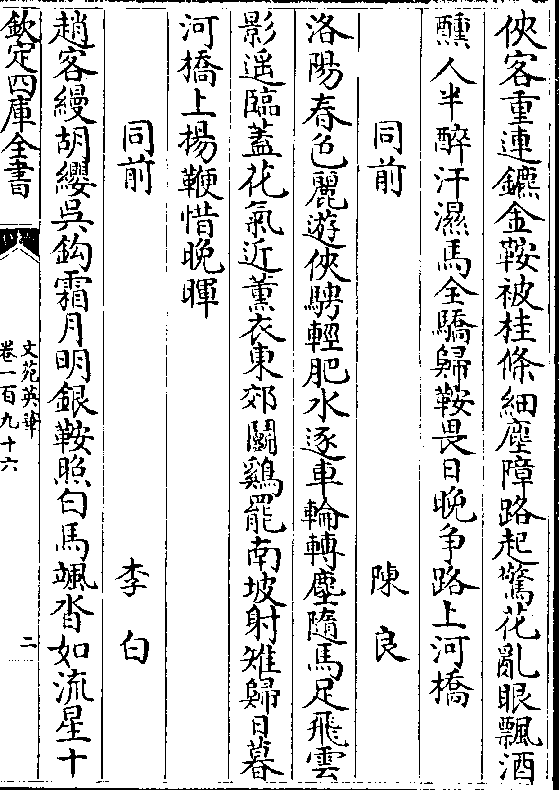 俠客重連鑣金鞍被桂條細塵障路起驚花亂眼飄酒
醺人半醉汗濕馬全驕歸鞍畏日晚争路上河橋
同前 陳良
洛陽春色麗遊俠騁輕肥水逐車輪轉塵隨馬足飛雲
影遥臨蓋花氣近薰衣東郊鬭鷄罷南坡射雉歸日暮
河橋上揚鞭惜晚暉
同前 李白
趙客縵胡纓吳鈎霜月明銀鞍照白馬颯沓如流星十
欽定四庫全書
文苑英華
卷一百九十六
二